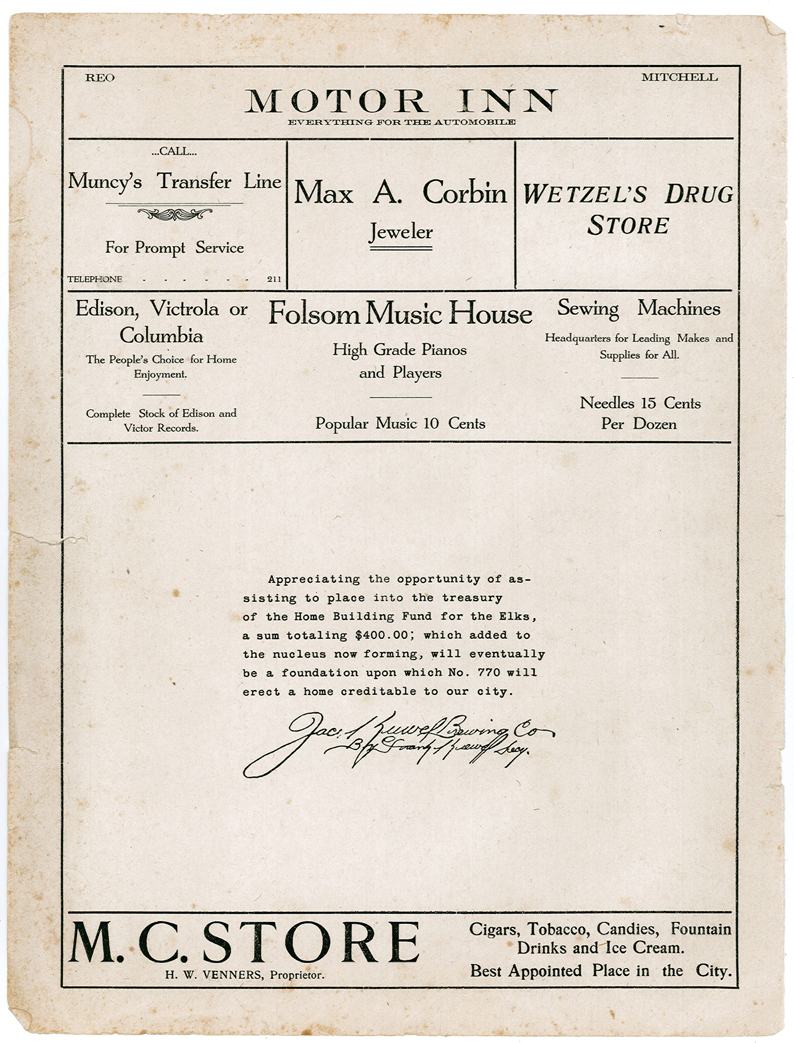 REO
MITCHELL
MOTOR INN
EVERYTHING FOR THE AUTOMOBILE
...CALL...
Muncy's Transfer Line
For Prompt Service
TELEPHONE - - - - - - 211
Max A. Corbin
Jeweler
WETZEL'S DRUG
STORE
Edison, Victrola or
Columbia
The People's Choice for Home
Enjoyment.
Complete Stock of Edison and
Victor Records.
Folsom Music House
High Grade Pianos
and Players
Popular Music 10 Cents
Sewing Machines
Headquarters for Leading Makes and
Supplies for All.
Needles 15 Cents
Per Dozen
Appreciating the opportunity of as-
sisting to place into the treasury
of the Home Building Fund for the Elks,
a sum totaling $400.00; which added to
the nucleus now forming, will eventually
be a foundation upon which No. 770 will
erect a home creditable to our city.
Jac. Kiewel Brewing Co
By Frank Kiewel Secy.
M. C. STORE
H. W. VENNERS, Proprietor.
Cigars, Tobacco, Candies, Fountain
Drinks and Ice Cream.
Best Appointed Place in the City.